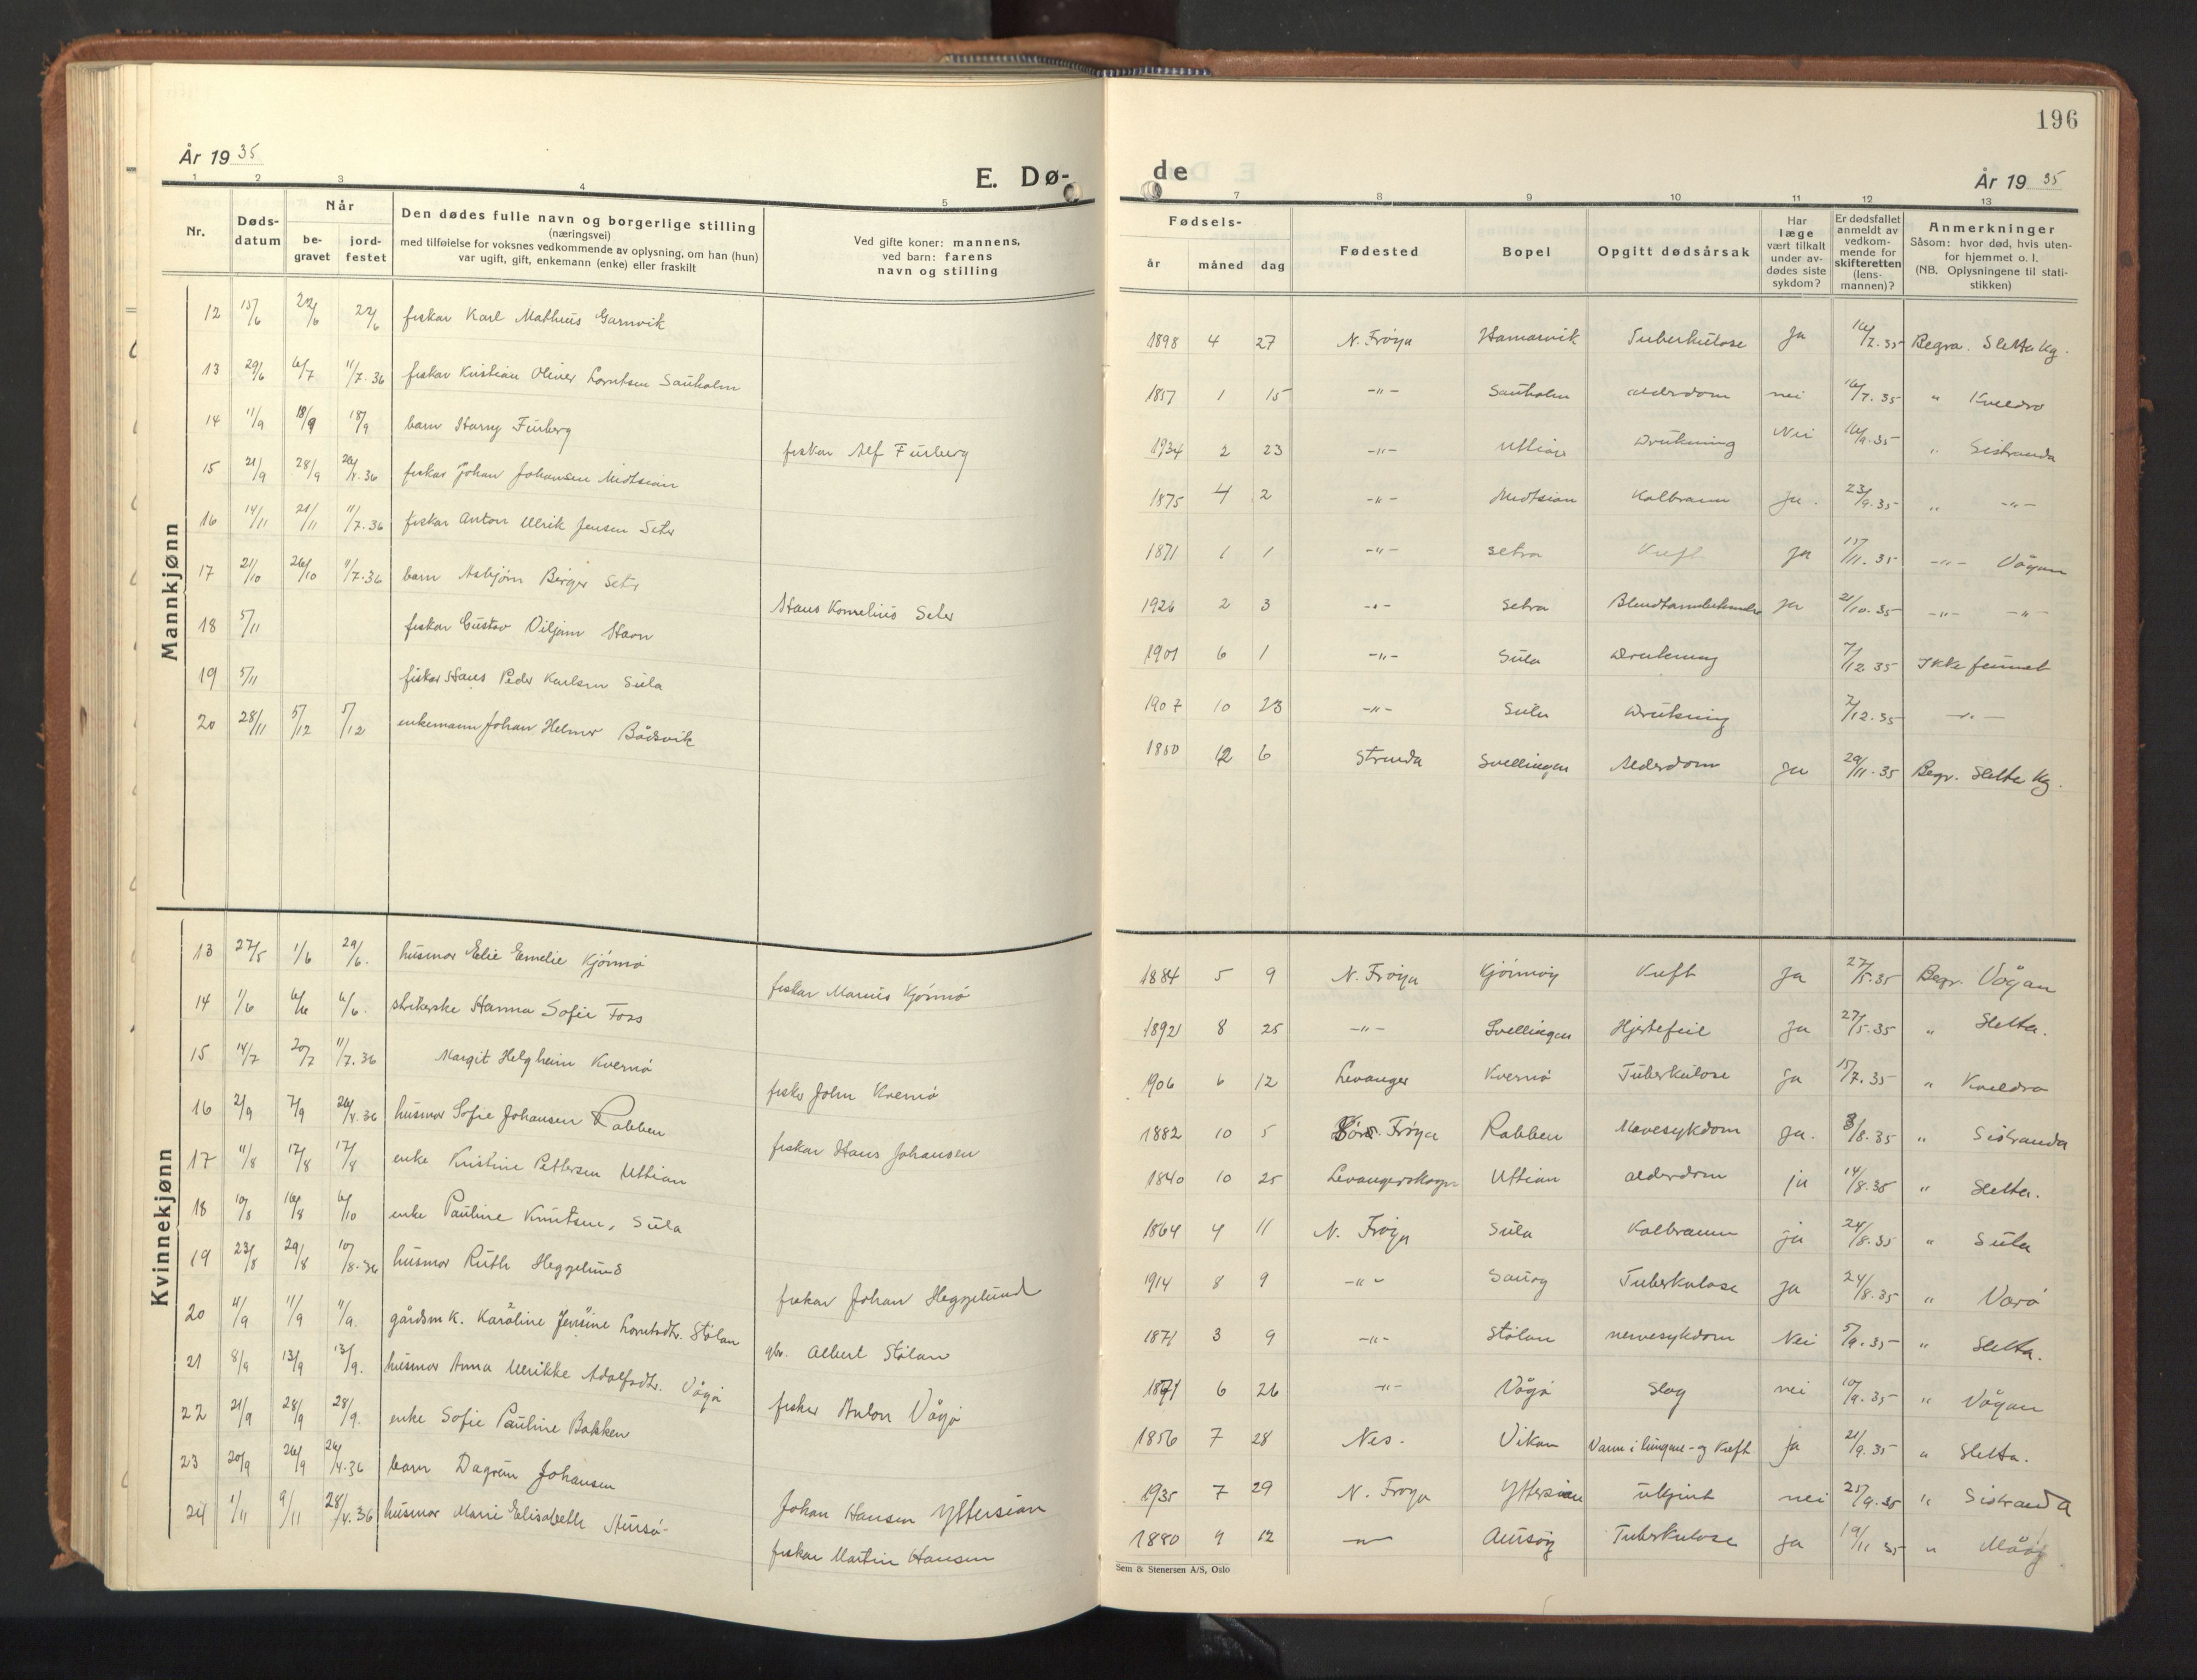 196
År 1935
E. Dø-
de
År 1935
1 2 3 4 5
7 8 9 10 11 12 13
Nr.
Døds-
datum
Når
be-
gravet
jord-
festet
Den dødes fulle navn og borgerlige stilling
(næringsvei)
med tilføielse for voksnes vedkommende av oplysning, om han (hun)
var ugift, gift, enkemann (enke) eller fraskilt
Ved gifte koner: mannens,
ved barn: farens
navn og stilling
Fødsels-
år måned dag
Fødested
Bopel
Opgitt dødsårsak
Har
læge
vært tilkalt
under av-
dødes siste
sykdom?
Er dødsfallet
anmeldt av
vedkom-
mende for
skifteretten
(lens-
mannen)?
Anmerkninger
Såsom: hvor død, hvis uten-
for hjemmet o. l.
(NB. Oplysningene til stati-
stikken)
Mannkjønn
12 15/6 22/6 22/6 fiskar Karl Mathius Garnvik 1898 4 27 N. Frøya Hamarvik Tuberkulose Ja 16/7.35 Begra. Sletta kg.
13 29/6 6/7 11/7.36 fiskar Kristian Oliver Lorntsen Sauholm 1857 1 15 -"- Sauholm alderdom nei 16/7.35 " Kveldro
14 11/9 18/9 18/9 barn Harry Furberg fiskar Alf Furberg 1934 2 23 -"- Uttian Drukning Nei 16/9.35 " Sistranda
15 21/9 28/9 26/4.36 fiskar Johan Johansen Midtsian 1875 4 2 -"- Midtsian Kolbrann ja. 23/9.35 " -"-
16 14/11 21/11 11/7.36 fiskar Anton Ulrik Jensen Seter 1871 1 1 -"- Setra Kreft ja 15/11.35 -"- Vågan
17 21/10 26/10 11/7.36 barn Asbjørn Birger Seter Hans Kornelius Seter 1926 2 3 -"- Setra ja 21/10.35 -"- -"-
18 5/11 fiskar Gustav Viljam Havn 1901 6 1 -"- Sula Drukning 7/12 35 Ikke funnet
19 5/11 fiskar Hans Peder Karlsen Sula 1907 10 23 -"- Sula Drukning 7/12.35 -"-
20 28/11 5/12 5/12 enkemann Johan Helmer Bådsvik 1850 12 6 Strinda Svellingen Alderdom ja 29/11.35 Begr. Sletta kg.
Kvinnekjønn
13 27/5 1/6 29/6. husmor Elie Emelie Kjørnø fiskar Marius Kjørnø 1884 5 9 N. Frøya Kjørnøy Kreft Ja 27/5.35 Begr. Vågan
14 1/6 6/6 6/6. Hanna Sofie Foss 1892 8 25 -"- Svellingen Hjertefeil ja 27/5.35 " Sletta.
15 14/7 20/7 11/7.36 Margit Helgheim Kvernø fisker John Kvernø 1906 6 12 Levanger Kvernø Tuberkulose ja 15/7.35 " Kveldro
16 2/9 7/9 26/4.36 husmor Sofie Johansen Rabben fiskar Hans Johansen 1882 10 5 Frøya Rabben Mavesykdom ja. 3/8.35 " Sistranda
17 11/8 17/8 17/8 enke Kristine Pettersen Uttian 1840 10 25 Uttian alderdom ja 14/8.35 " Sletta.
18 10/8 16/8 6/10 enke Pauline Knutsen, Sula 1864 4 11 N. Frøya Sula Kolbrann ja 24/8.35 " Sula
19 23/8 29/8 10/8.36 husmor Ruth Heggelund fiskar Johan Heggelund 1914 8 9 -"- Sauøy Tuberkulose Ja 24/8.35 " Sletta
20 4/9 11/9 11/9. gårdm k. Karoline Jensine Lorntsdtr. Stølan gbr. Albert Stølan 1871 3 9 -"- Stølan nervesykdom Nei 5/9.35 " Sletta.
21 8/9 13/9 13/9. husmor Anna Ulrikke Adolfsdtr. Vågø fisker Anton Vågø 1871 6 26 -"- Vågø Slag nei 10/9.35 " Vågan
22 21/9 28/9 28/9. enke Sofie Pauline Bakken 1856 7 28 Nes. Vikan Vann i lungene- og Kreft ja 21/9.35 " Sletta.
23 20/9 26/9 26/4.36 barn Dagrun Johansen Johan Hansen Yttersian 1935 7 29 N. Frøya Yttersian ukjent nei 25/9.35 " Sistranda
24 1/11 9/11 28/4.36 husmor Marie Elisabeth Aursø fiskar Martin Hansen 1880 9 12 -"- Aursøy Tuberkulose Ja 19/11 35 "
Sem & Stenersen A/S, Oslo